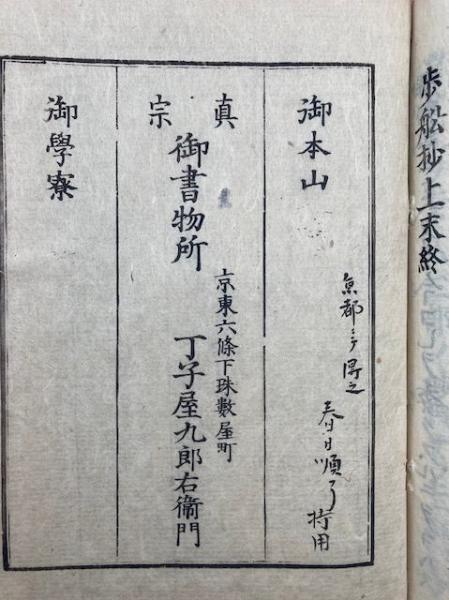 歩舩抄上末終
御本山
京都ニテ得之
春日順了持用
真宗
御書物所
京東六條下珠數屋町
丁子屋九郎右衞門
御學寮